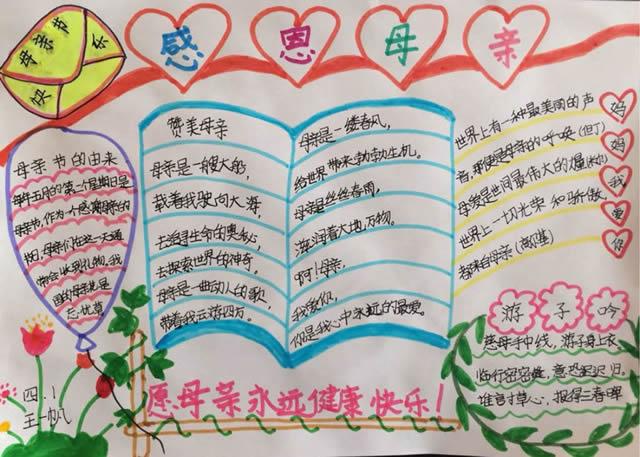 母亲节
快乐
感恩母亲
母亲节的由来
每年五月的第二个星期日是
母亲节,作为一个感恩母亲的
节日,母亲们在这一天通
常会收到礼物,我
国的母亲花是
忘忧草。
赞美母亲
母亲是一艘大船,
载着我驶向大海,
去追寻生命的奥秘,
去探索世界的神奇,
母亲是一曲动人的歌,
带着我云游四方。
母亲是一缕春风,
给世界带来勃勃生机。
母亲是丝丝春雨,
滋润着大地万物。
啊!母亲,
我爱你,
你是我心中永远的最爱。
世界上有一种最美丽的声
音,那便是母亲的呼唤(但丁)
母爱是世间最伟大的力量
世界上一切光荣和骄傲,
都来自母亲(高尔基)
妈
妈
我
爱
你
游子吟
慈母手中线,游子身上衣
临行密密缝,意恐迟迟归,
谁言寸草心,报得三春晖
愿母亲永远健康快乐!
四.1
王一帆